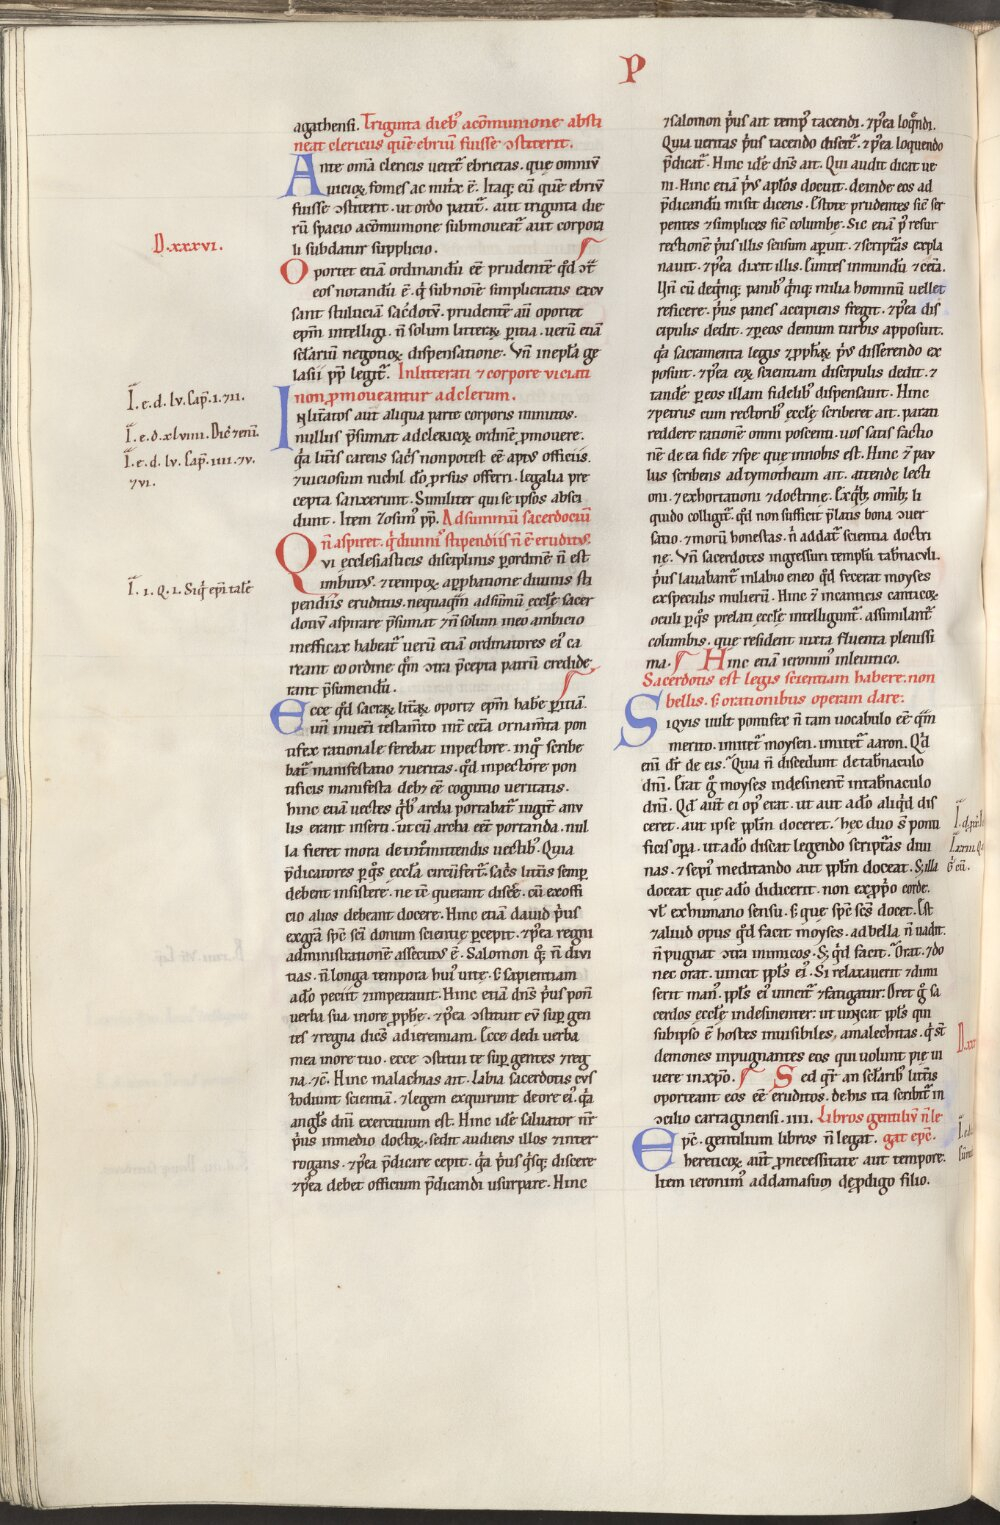 P
agathensi. Triginta dieb᷒ acōmunione absti
neat clericus quē ebriū fuisse ꝯstiterit.
Ante om̄a clericis uetet᷑ ebrietas. que omniū
uicioꝝ fomes ac nut᷑x ē. Itaq; eū quē ebriū
fuisse ꝯstiterit. ut ordo patit᷑. aut triginta die
rū spacio acōmunione submoueat᷑ aut corpora
li subdatur supplicio.
D.xxxvi.
Oportet etiā ordinandū eē prudentē qd̓ ꝯt᷑
eos notandū ē. q̇ sub noīe simplicitatis excu
sant stulticiā sac̓dotū. prudentē aū oportet
ep̄m intelligi. n̄ solum litteraꝝ ꝑitia. uerū etiā
sc̓lariū negotioꝝ dispensatione. Vn̄ in ep̄la ge
lasii pp̄ legit᷑. Inlitterati ⁊ corpore uiciati
non ꝓmoueantur ad clerum.
Inlitt̓atos aut aliqua parte corporis minutos.
nullus p̄sumat ad clericoꝝ ordinē ꝓmouere.
q̇a litt̓is carens sac̓s non potest eē aptus officiis.
⁊ uiciosum nichil dō ꝓrsus offerri. legalia pre
cepta sanxerunt. Similiter qui se ipsos absci
dunt. Item Zosim᷒ pp̄. Ad summū sacerdociū
n̄ aspiret. q̇ diuinis stipendiis n̄ ē eruditus.
Qui ecclesiasticis disciplinis ꝑ ordinē n̄ est
imbutus. ⁊ tempoꝝ approbatione diuinis sti
pendiis eruditus. nequaqm̄ ad sūmū eccl̓e sacer
dotiū aspirare p̄sumat ⁊ n̄ solum in eo ambicio
inefficax habeat᷑ uerū etiā ordinatores ei᷒ ca
reant eo ordine qm̄ ꝯtra p̄cepta patrū credide
rant p̄sumendū.
Ecce qd̓ sacraꝝ litt̓aꝝ oportꝫ ep̄m hab̓e ꝑitiā.
un̄ in uet̓i testam̄to int̓ cet̓a ornam̄ta pon
tifex rationale ferebat in pectore. in quo scribe
bat᷑ manifestatio ⁊ ueritas. qd̓ in pectore pon
tificis manifesta debꝫ eē cognitio ueritatis.
hinc etiā uectes qb᷒ archa portabat᷑ iugit̓ anu
lis erant inserti. ut cū archa eēt portanda. nul
la fieret mora de int̓mittendis uectib᷒. Quia
p̄dicatores ꝑ quos eccl̓a circūfert᷑. sac̓s litt̓is semꝑ
debent insistere. ne tē querant disc̓e. cū ex offi
cio alios debeant docere. Hinc etiā dauid pus
ex gr̄a spc̄ sc̄i donum scientie ꝑcepit. ⁊ ꝑea regni
administrationē assecutus ē. Salomon qꝫ n̄ diui
tias. n̄ longa tempora hui᷒ uite. s; sapientiam
a dō peciit ⁊ impetrauit. Hinc etiā dn̄s pus pon̄
uerba sua in ore ꝓphe. ⁊ ꝑea ꝯstituit eū suꝑ gen
tes ⁊ regna dicēs ad ieremiam. Ecce dedi uerba
mea in ore tuo. ecce ꝯstitui te suꝑ gentes ⁊ reg
na. ⁊c̄. Hinc malachias ait. labia sacerdotis cus
todiunt scientiā. ⁊ legem exquirunt de ore ei᷒. q̇a
angl̓s dn̄i exercituum est. Hinc idē saluator nr̄
pus in medio doctoꝝ. sedit audiens illos ⁊ inter
rogans. ⁊ ꝑea p̄dicare cepit. q̇a pus qsq; discere
⁊ ꝑea debet officium p̄dicandi usurpare. Hinc
I. e. d. lv. Cap. i. ⁊ ii.
I. e. d. xlviiii. Dic̄ ⁊ eni.
I. e. d. lv. Cap. iiii. ⁊ v.
⁊ vi.
I. i. Q. i. Siq̇ ep̄i tale
⁊ salomon pus ait temp᷒ tacendi. ⁊ ꝑea loqndi.
Quia ueritas pus tacendo discit᷑. ⁊ ꝑea loquendo
p̄dicat᷑. Hinc idē dn̄s ait. Qui audit dicat ue
ni. Hinc etiā pus apl̓os docuit. deinde eos ad
p̄dicandū misit dicens. Estote prudentes sic̄ ser
pentes ⁊ simplices sic̄ columbe. Sic etiā p᷒ resur
rectionē pus illis sensum aꝑuit. ⁊ scripturas expla
nauit. ⁊ ꝑea dixit illis. Euntes in mundū ⁊ cet̓a.
Hn̄ cū de qnq; panib᷒ qnq; milia hominū uellet
reficere. pus panes accipiens fregit. ⁊ ꝑea dis
cipulis dedit. ⁊ ꝑ eos demum turbis apposuit.
q̇a sacramenta legis ⁊ ꝓphaꝝ pus disserendo ex
posuit. ⁊ ꝑea eoꝝ scientiam discipulis dedit. ⁊
tandē ꝑ eos illam fidelib᷒ dispensauit. Hinc
⁊ petrus cum rectorib᷒ eccl̓e scriberet ait. parati
reddere rationē omni poscenti. uos satis factio
nē de ea fide ⁊ spe que in nobis est. Hinc ⁊ pau
lus scribens ad tymotheum ait. attende lecti
oni. ⁊ exhortationi ⁊ doctrine. Ex qb; omib; li
quido colligit᷑. qd̓ non sufficit p̄latis bona ꝯuer
satio. ⁊ morū honestas. n̄ addat᷑ scientia doctri
ne. Vn̄ sacerdotes ingressuri templū tab̓nacl̓i.
pus lauabant᷑ in labio eneo qd̓ fecerat moyses
ex speculis mulierū. Hinc ⁊ in canticis canticoꝝ
oculi ꝑ quos prelati eccl̓e intelligunt᷑. assimilant᷑
columbis. que resident iuxta fluenta plenissi
ma. Hinc etiam ieronim᷒ in leuitico.
Sacerdotis est legis scientiam habere. non
bellis. s; orationibus operam dare.
Siquis uult pontifex n̄ tam uocabulo eē qm̄
merito. imitet᷑ moysen. imitet᷑ aaron. Qd̓
enī dr̄ de eis. Quia n̄ discedunt de tab̓naculo
dn̄i. Erat g̊ moyses indesinent̓ in tab̓naculo
dn̄i. Qd̓ aut̄ ei op᷒ erat. ut aut a dō aliqd̓ dis
ceret. aut ipse ppl̓m doceret. hec duo s̄ ponti
ficis oꝑa. ut a dō discat legendo scripturas diui
nas. ⁊ sepi᷒ meditando aut ppl̓m doceat. S; illa
doceat que a dō didicerit. non ex ꝓprio corde.
ul̓ ex humano sensu. s; que spc̄ sc̄s docet. Est
⁊ aliud opus qd̓ facit moyses. ad bella n̄ uadit.
n̄ pugnat ꝯtra inimicos. S; qd̓ facit᷑. Orat. ⁊ do
nec orat. uincit ppl̓s ei᷒. Si relaxauerit ⁊ dimi
serit man᷒. ppl̓s ei᷒ uincit᷑ ⁊ fatigatur. Oret g̊ sa
cerdos eccl̓e indesinenter. ut uincat ppl̓s qui
sub ipso ē hostes inuisibiles. amalechitas. q̇ s̄t
demones impugnantes eos qui uolunt pie ui
uere in xp̄o. Sed qr̓ an sc̓larib᷒ litt̓is
oporteant eos eē eruditos. de his ita scribit᷑ in
ꝯcilio cartaginensi. iiii. Libros gentiliū n̄ le
gat epc̄.
Epc̄. gentilium libros n̄ legat.
hereticoꝝ aut̄ ꝓ necessitate aut tempore.
Item ieronim᷒ ad damasum de ꝓdigo filio.